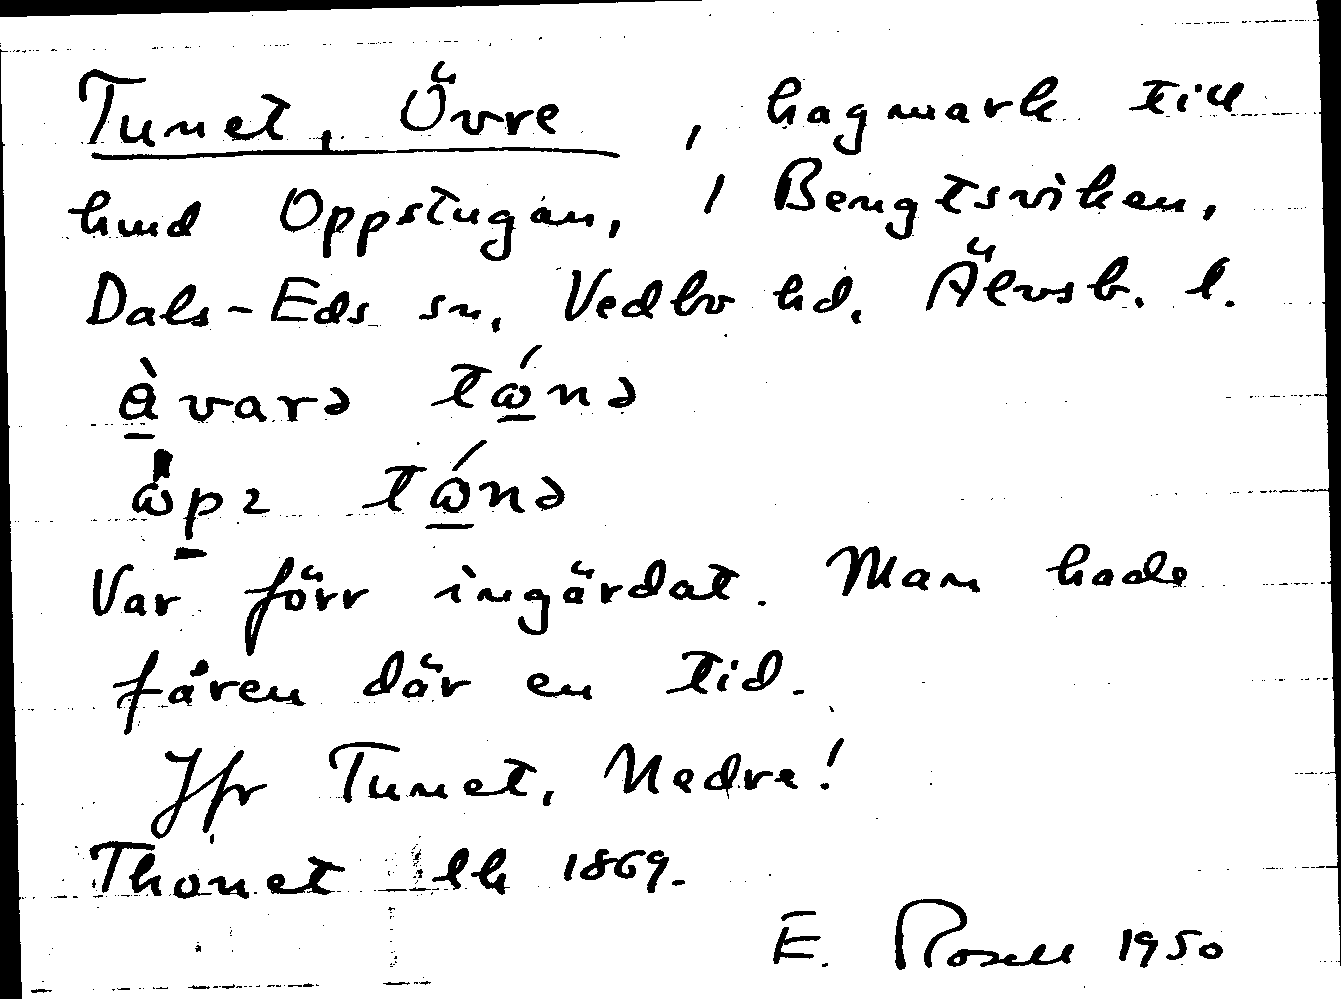 Tunet, Övre, hagmark till
hmd Oppstugan, 1 Bengtsviken,
Dals-Eds sn, Vedbo hd, Älvsb. l.
varə tɷ́nə
tɷ́nə
Var förr ingärdat. Man hade
fåren där en tid.
Jfr Tunet, Nedre!
Thonet lk 1869.
E. Rosell 1950